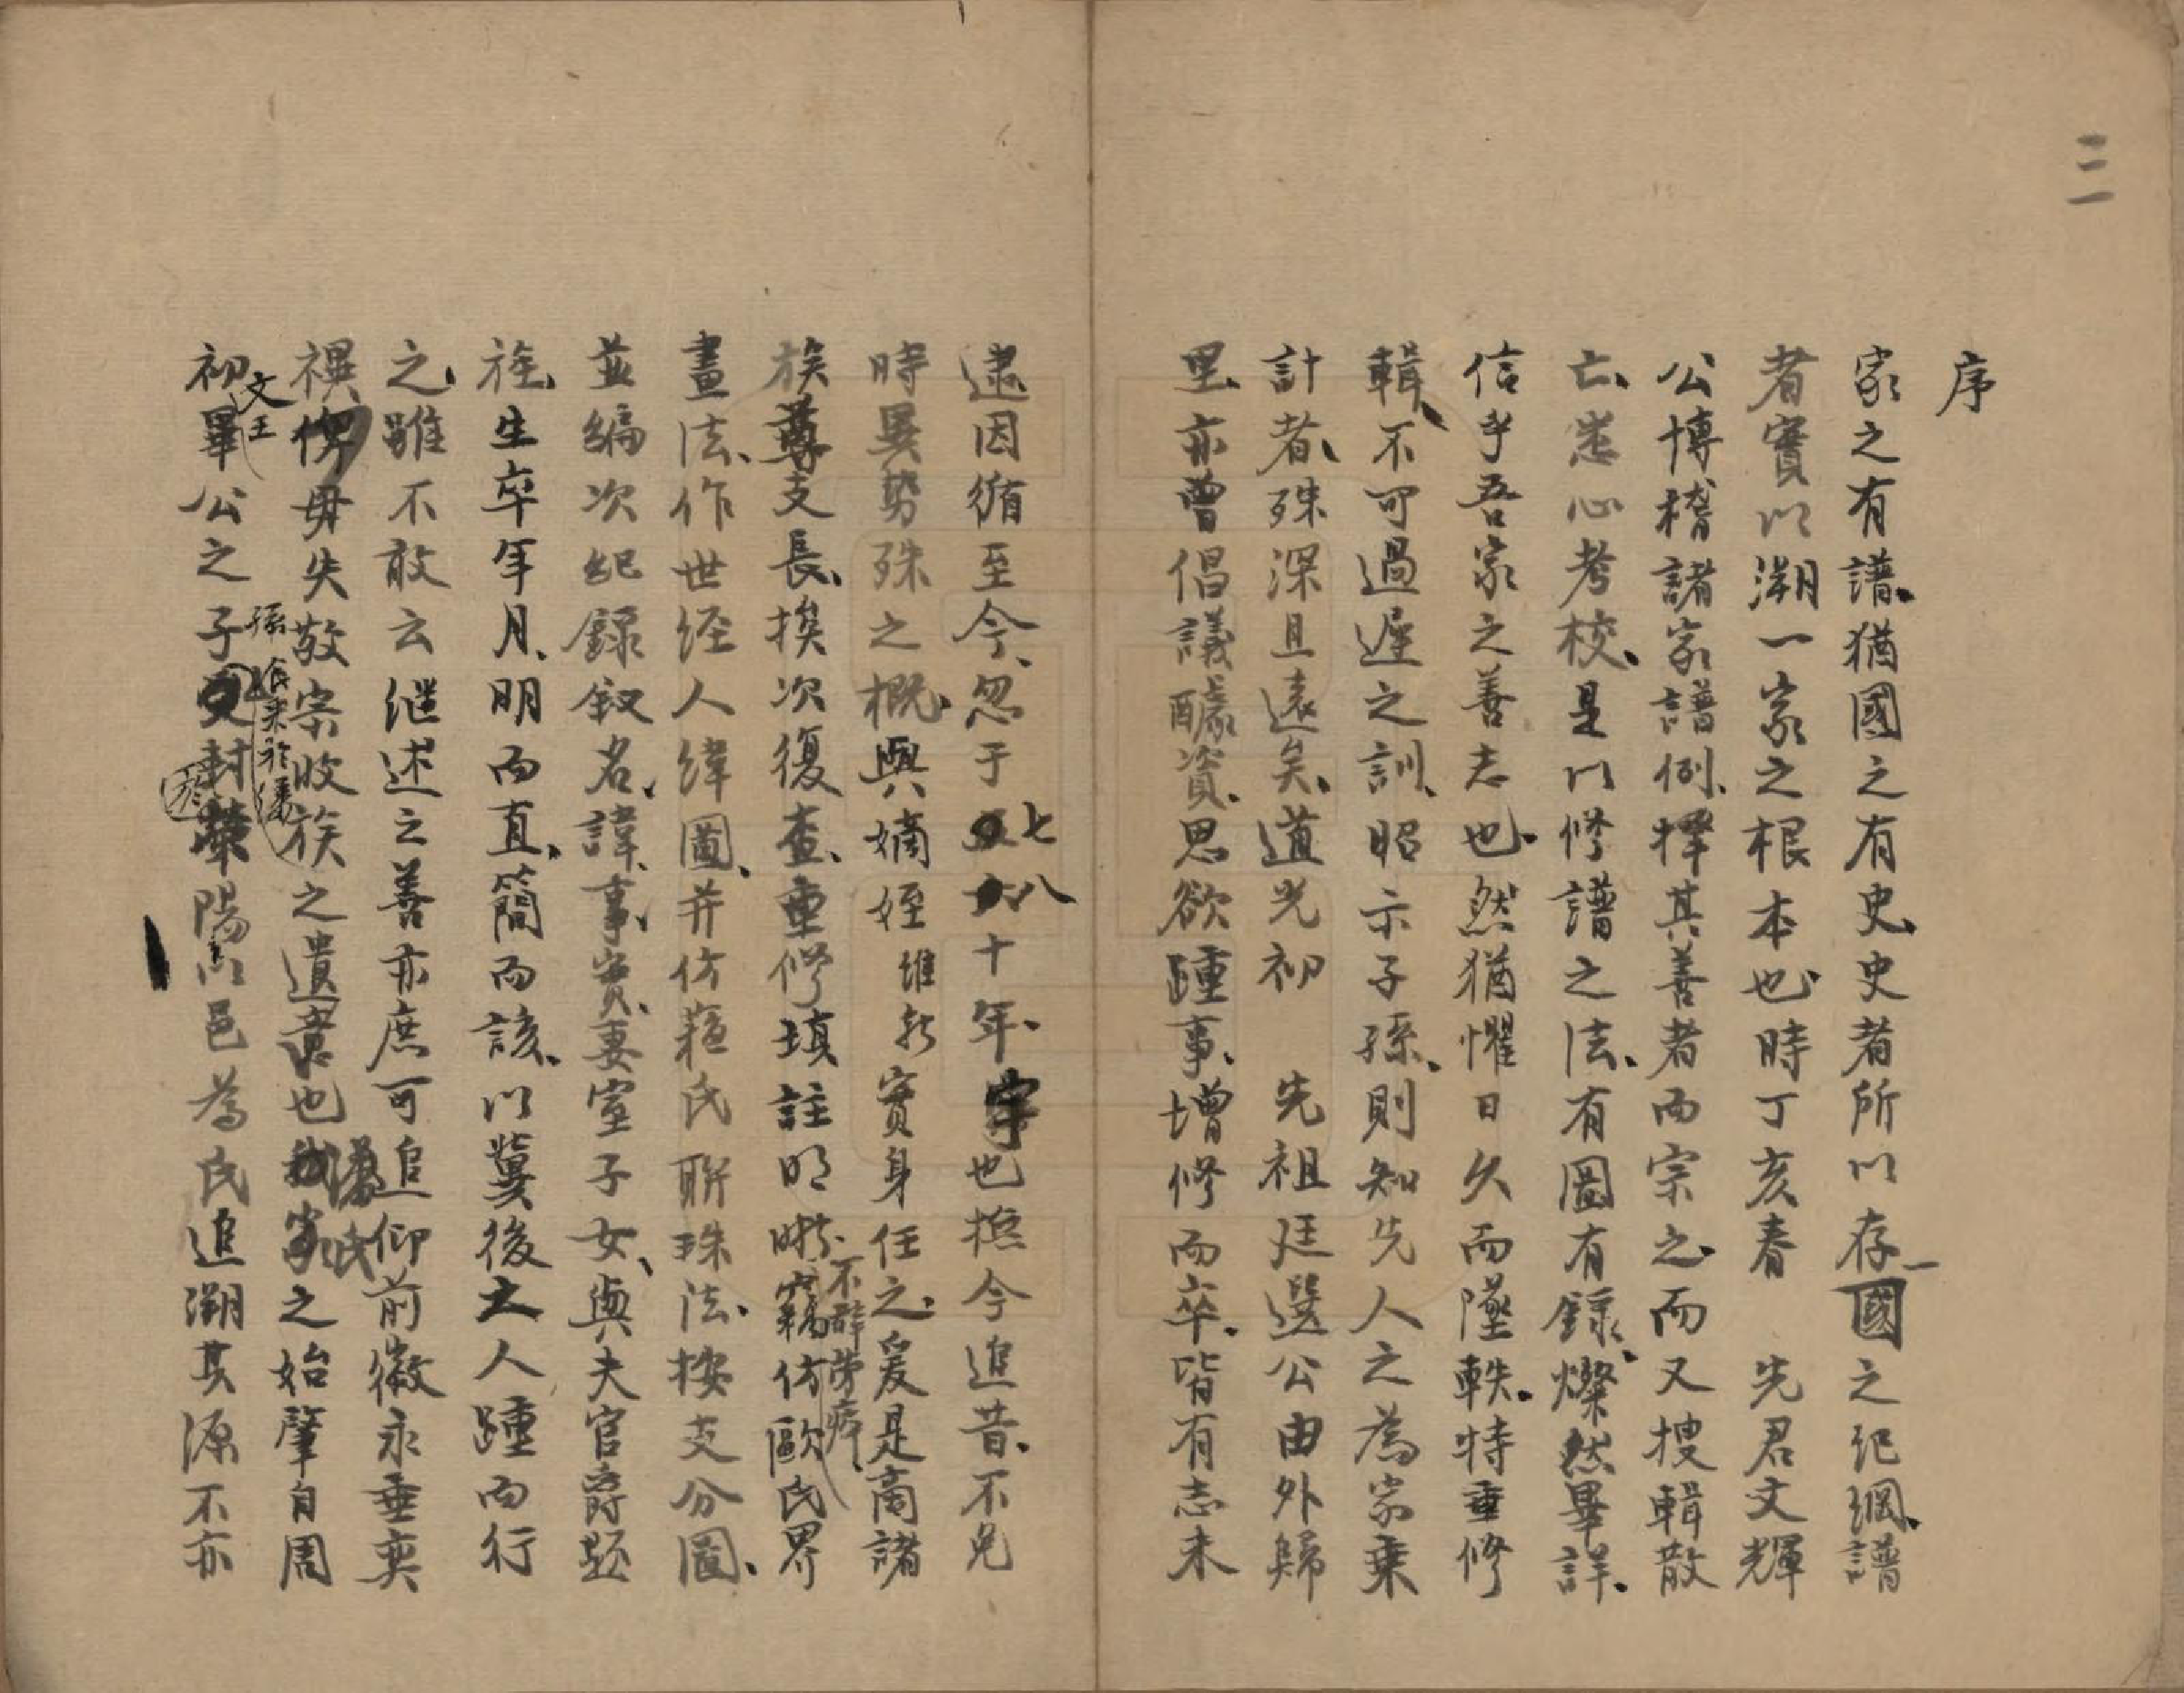 三一
序
家之有譜猶國之有史史者所以存國之紀綱譜
者實以溯一家之根本也時丁亥春 先君文輝
公博稽諸家譜例擇其善者而宗之而又搜輯散
亡悉心考校是以修譜之法有圖有錄燦然畢詳
信乎吾家之善志也然猶懼日久而墜軼特重修
輯不可過遲之訓昭示子孫則知先人之為家乘
計者殊深且遠矣道光初 先祖廷選公由外歸
里亦曾倡議醵資思欲踵事增修而卒皆有志未
逮因循至今忽于七八十年也撫今追昔不免
時異勢殊之概與嫡姪維新實身任之爰是商諸
不辭勞瘁
族尊支長挨次復查重修填註明晰竊仿歐氏界
畫法作世經人緯圖并仿蘇氏聯珠法按支分圖
並編次紀錄叙名諱事實妻室子女與夫官爵題
旌生卒年月明而直簡而該以冀後之人踵而行
之雖不敢云繼述之善亦庶可追仰前徽永垂奕
禩俾毋失敬宗收族之遺意也潘氏之始肇自周
文王
孫食采於潘
初畢公之子封滎陽以邑為氏追溯其源不亦